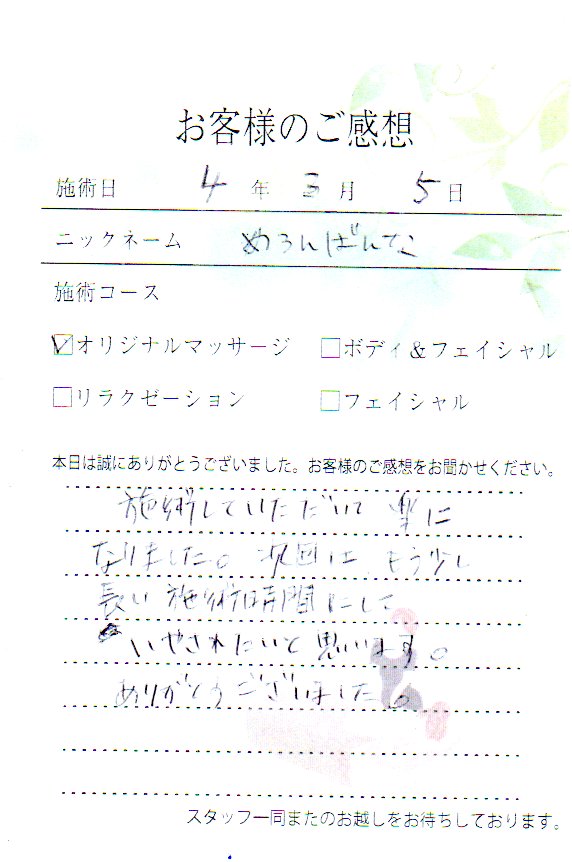 お客様のご感想
施術日 4年 3月 5日
ニックネーム めろんぱんなこ
施術コース
☑オリジナルマッサージ □ボディ&フェイシャル
□リラクゼーション □フェイシャル
本日は誠にありがとうございました。お客様のご感想をお聞かせください。
施術していただいて 楽に
なりました。次回は、もう少し
長い 施術時間にして
いやされたいと思います。
ありがとうございました。
スタッフ一同またのお越しをお待ちしております。